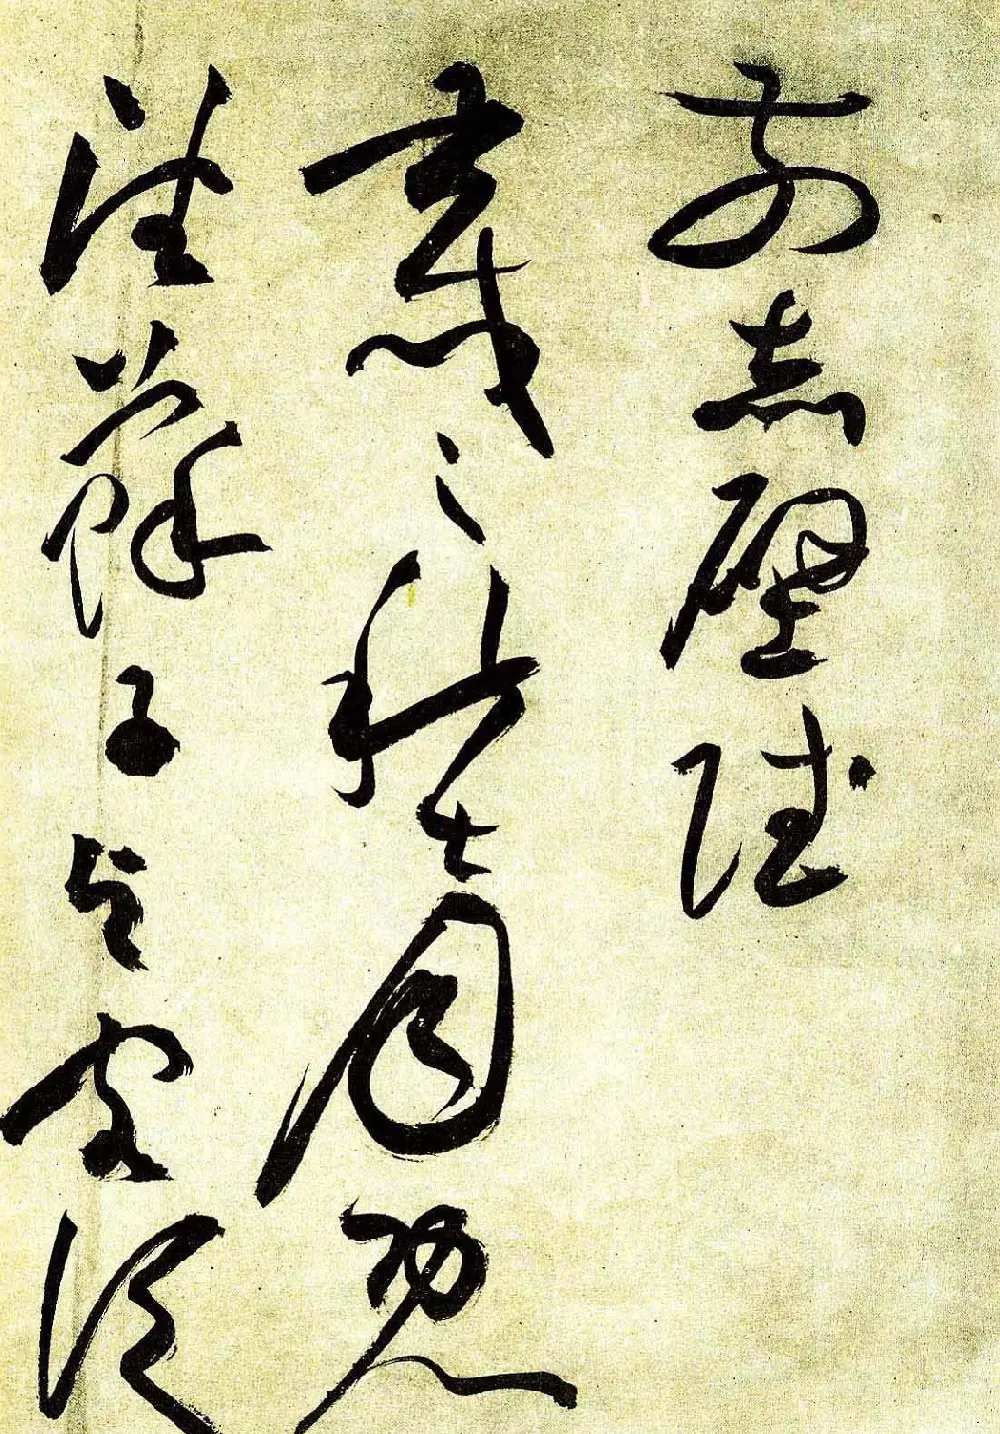 前赤壁賦
壬戌之秋七月既
望蘇子與客泛